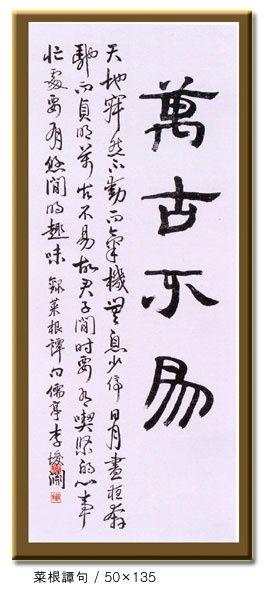 萬古不易
天地寂然不動而氣機無息少停日月晝夜奔
馳而貞明萬古不易故君子閒時要有喫緊的心事
忙處要有悠閒的趣味 錄菜根譚句 儒亭 李 淵
菜根譚句 / 50×135